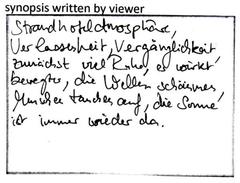 synopsis written by viewer
Strandhotelatmosphäre,
Verlassenheit, Vergänglichkeit
zunächst viel Ruhe, es wirkt
bewegter, die Wellen schäumen,
Menschen tauchen auf, die Sonne
ist immer wieder da.